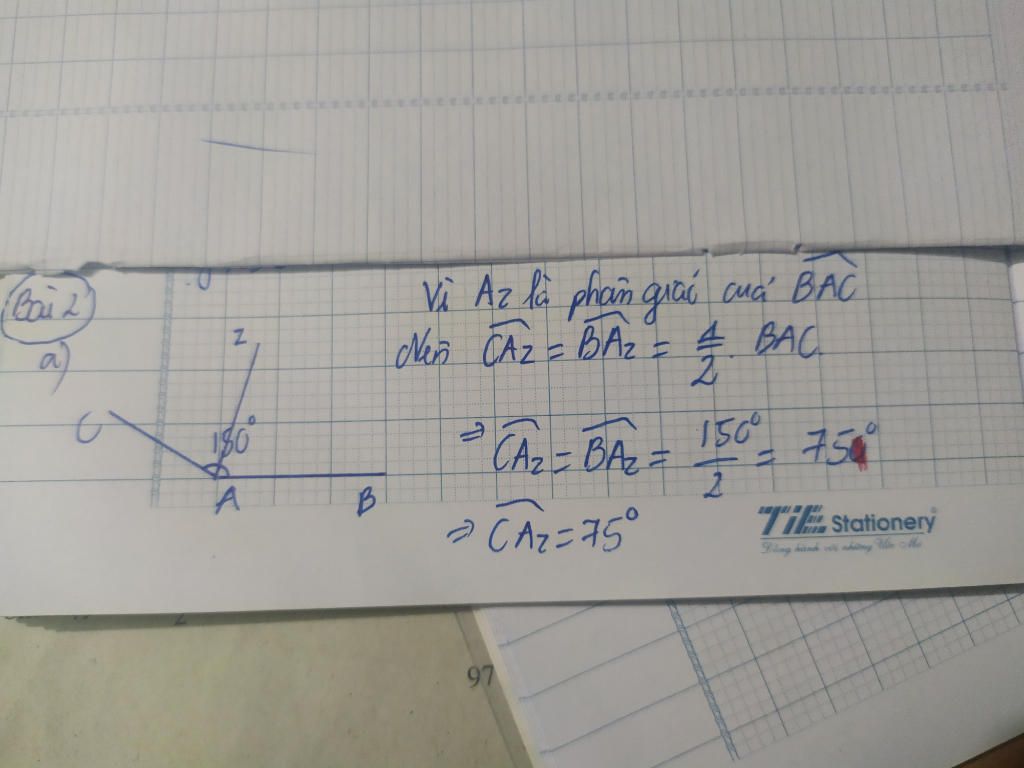 Bài 2
a)
Vì Az là phân giác của BAC
Nên CAz = BAz = 1/2 . BAC
z
C
150°
A
B
⇒ CAz = BAz = 150°/2 = 75°
⇒ CAz = 75°
TiE Stationery
Đồng hành với những Ước Mơ
97